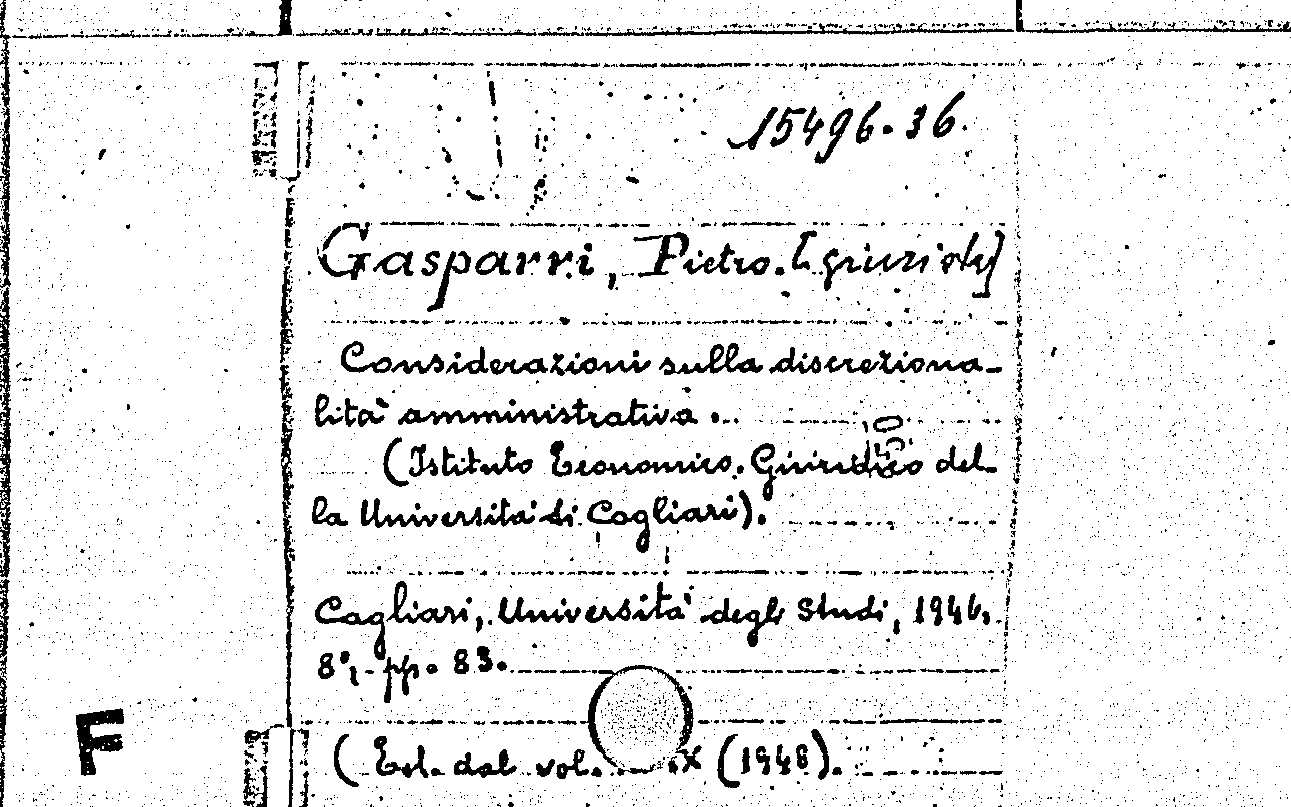 15496.36.
Gasparri, Pietro. [giurista]
Considerazioni sulla discreziona-
lità amministrativa...
(Istituto Economico. Giuridico del-
la Università di Cagliari).
Cagliari, Università degli Studi, 1946.
8°,- pp. 83.
F
(Est. dal vol. X (1948).